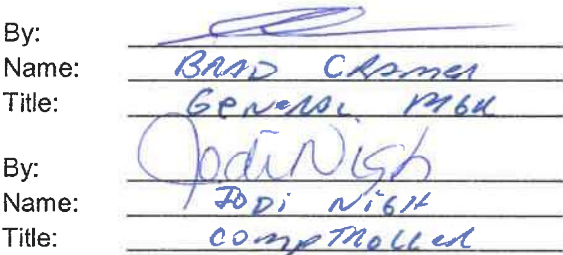 By:
Name: BRAD CRAMER
Title: GENERAL MGR
By: Jodi Nigh
Name: JODI NIGH
Title: COMPTROLLER